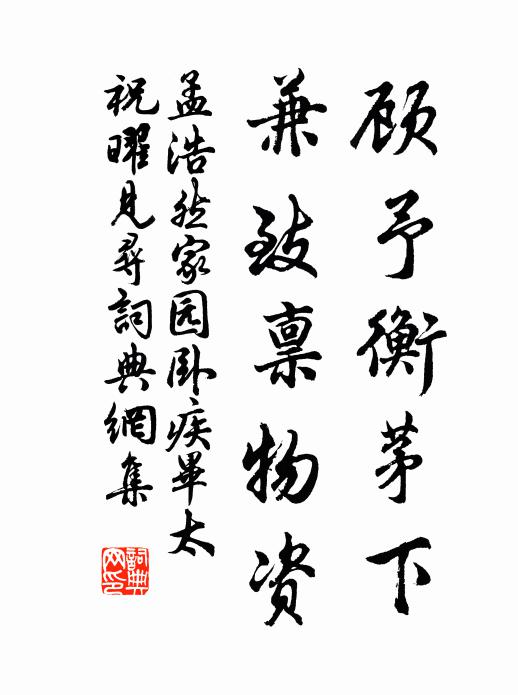 顾予衡茅下
兼致禀物资
孟浩然家园卧疾畢太
祝曜見尋詞典網集
詞典网印